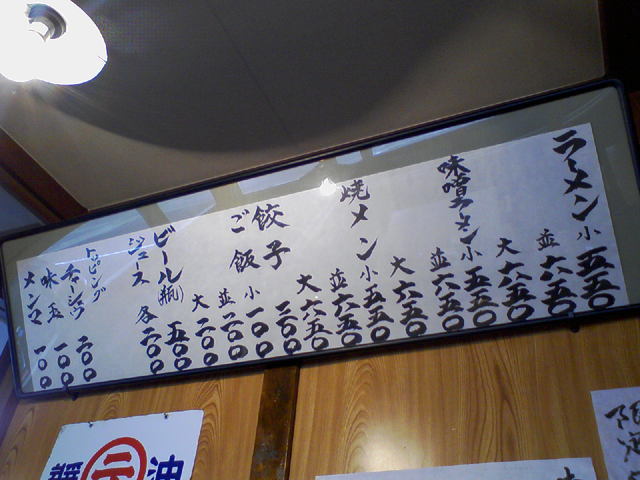 ラーメン 小 五五〇
並 六五〇
大 六五〇
味噌ラーメン 小 五五〇
並 六五〇
大 六五〇
焼メン 小 五五〇
並 六五〇
大 六五〇
餃子 〇〇
ご飯 小 一〇〇
並
大 二〇〇
ビール(瓶) 五〇〇
ジュース 各 二〇〇
トッピング
チャーシュウ 二〇〇
味玉 一〇〇
メンマ 一〇〇
油 醤